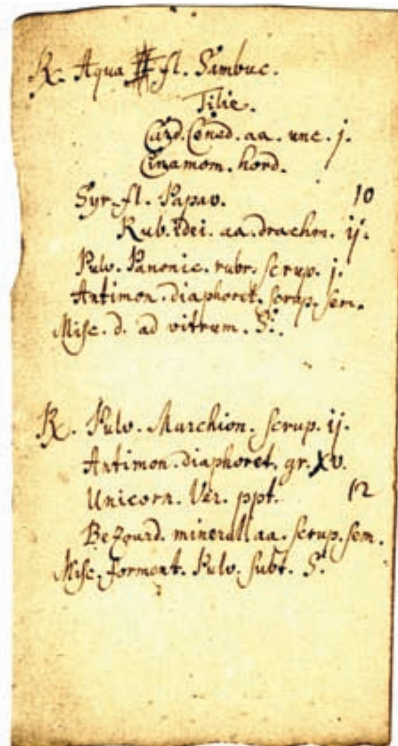 ℞. Aqua fl. Sambuc.
Tilie.
Card. Bened. aa. unc. j.
Cinamom. hord.
Syr. fl. Papav. 10
Rub. Idei. aa. drachm. ij.
Pulv. Panonic. rubr. scrup. j.
Antimon. diaphoret. scrup. sem.
Misc. d. ad vitrum. S.
℞. Pulv. Marchion. scrup. ij.
Antimon. diaphoret. gr. xv.
Unicorn. Ver. ppt. 12
Bezoard. minerall aa. scrup. sem.
Misc. forment. Pulv. subt. S.